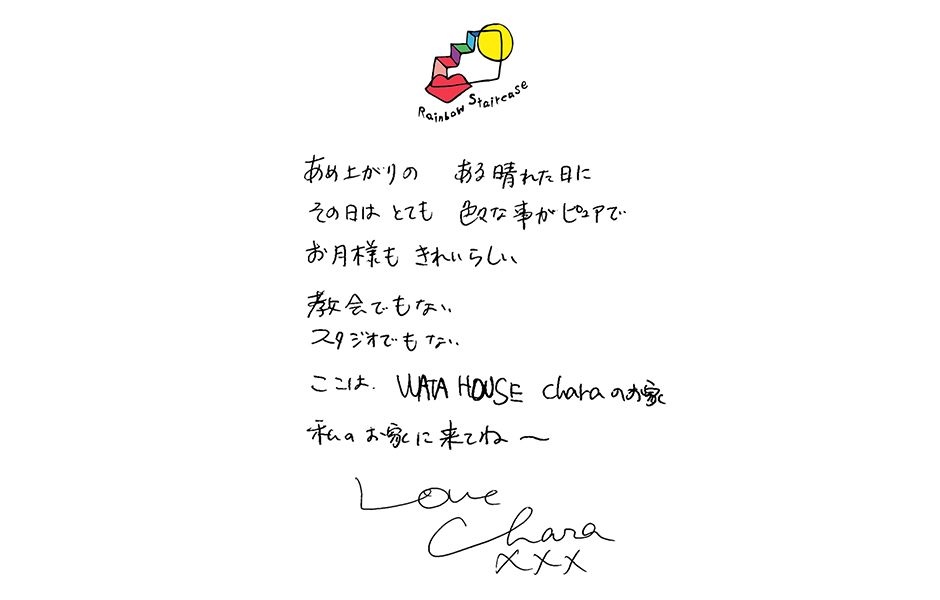 Rainbow Staircase
あめ上がりの ある晴れた日に
その日は とても 色々な事がピュアで
お月様も きれいらしい、
教会でもない、
スタジオでもない、
ここは、 WATA HOUSE charaのお家
私のお家に来てね〜
Love
Chara
xxx